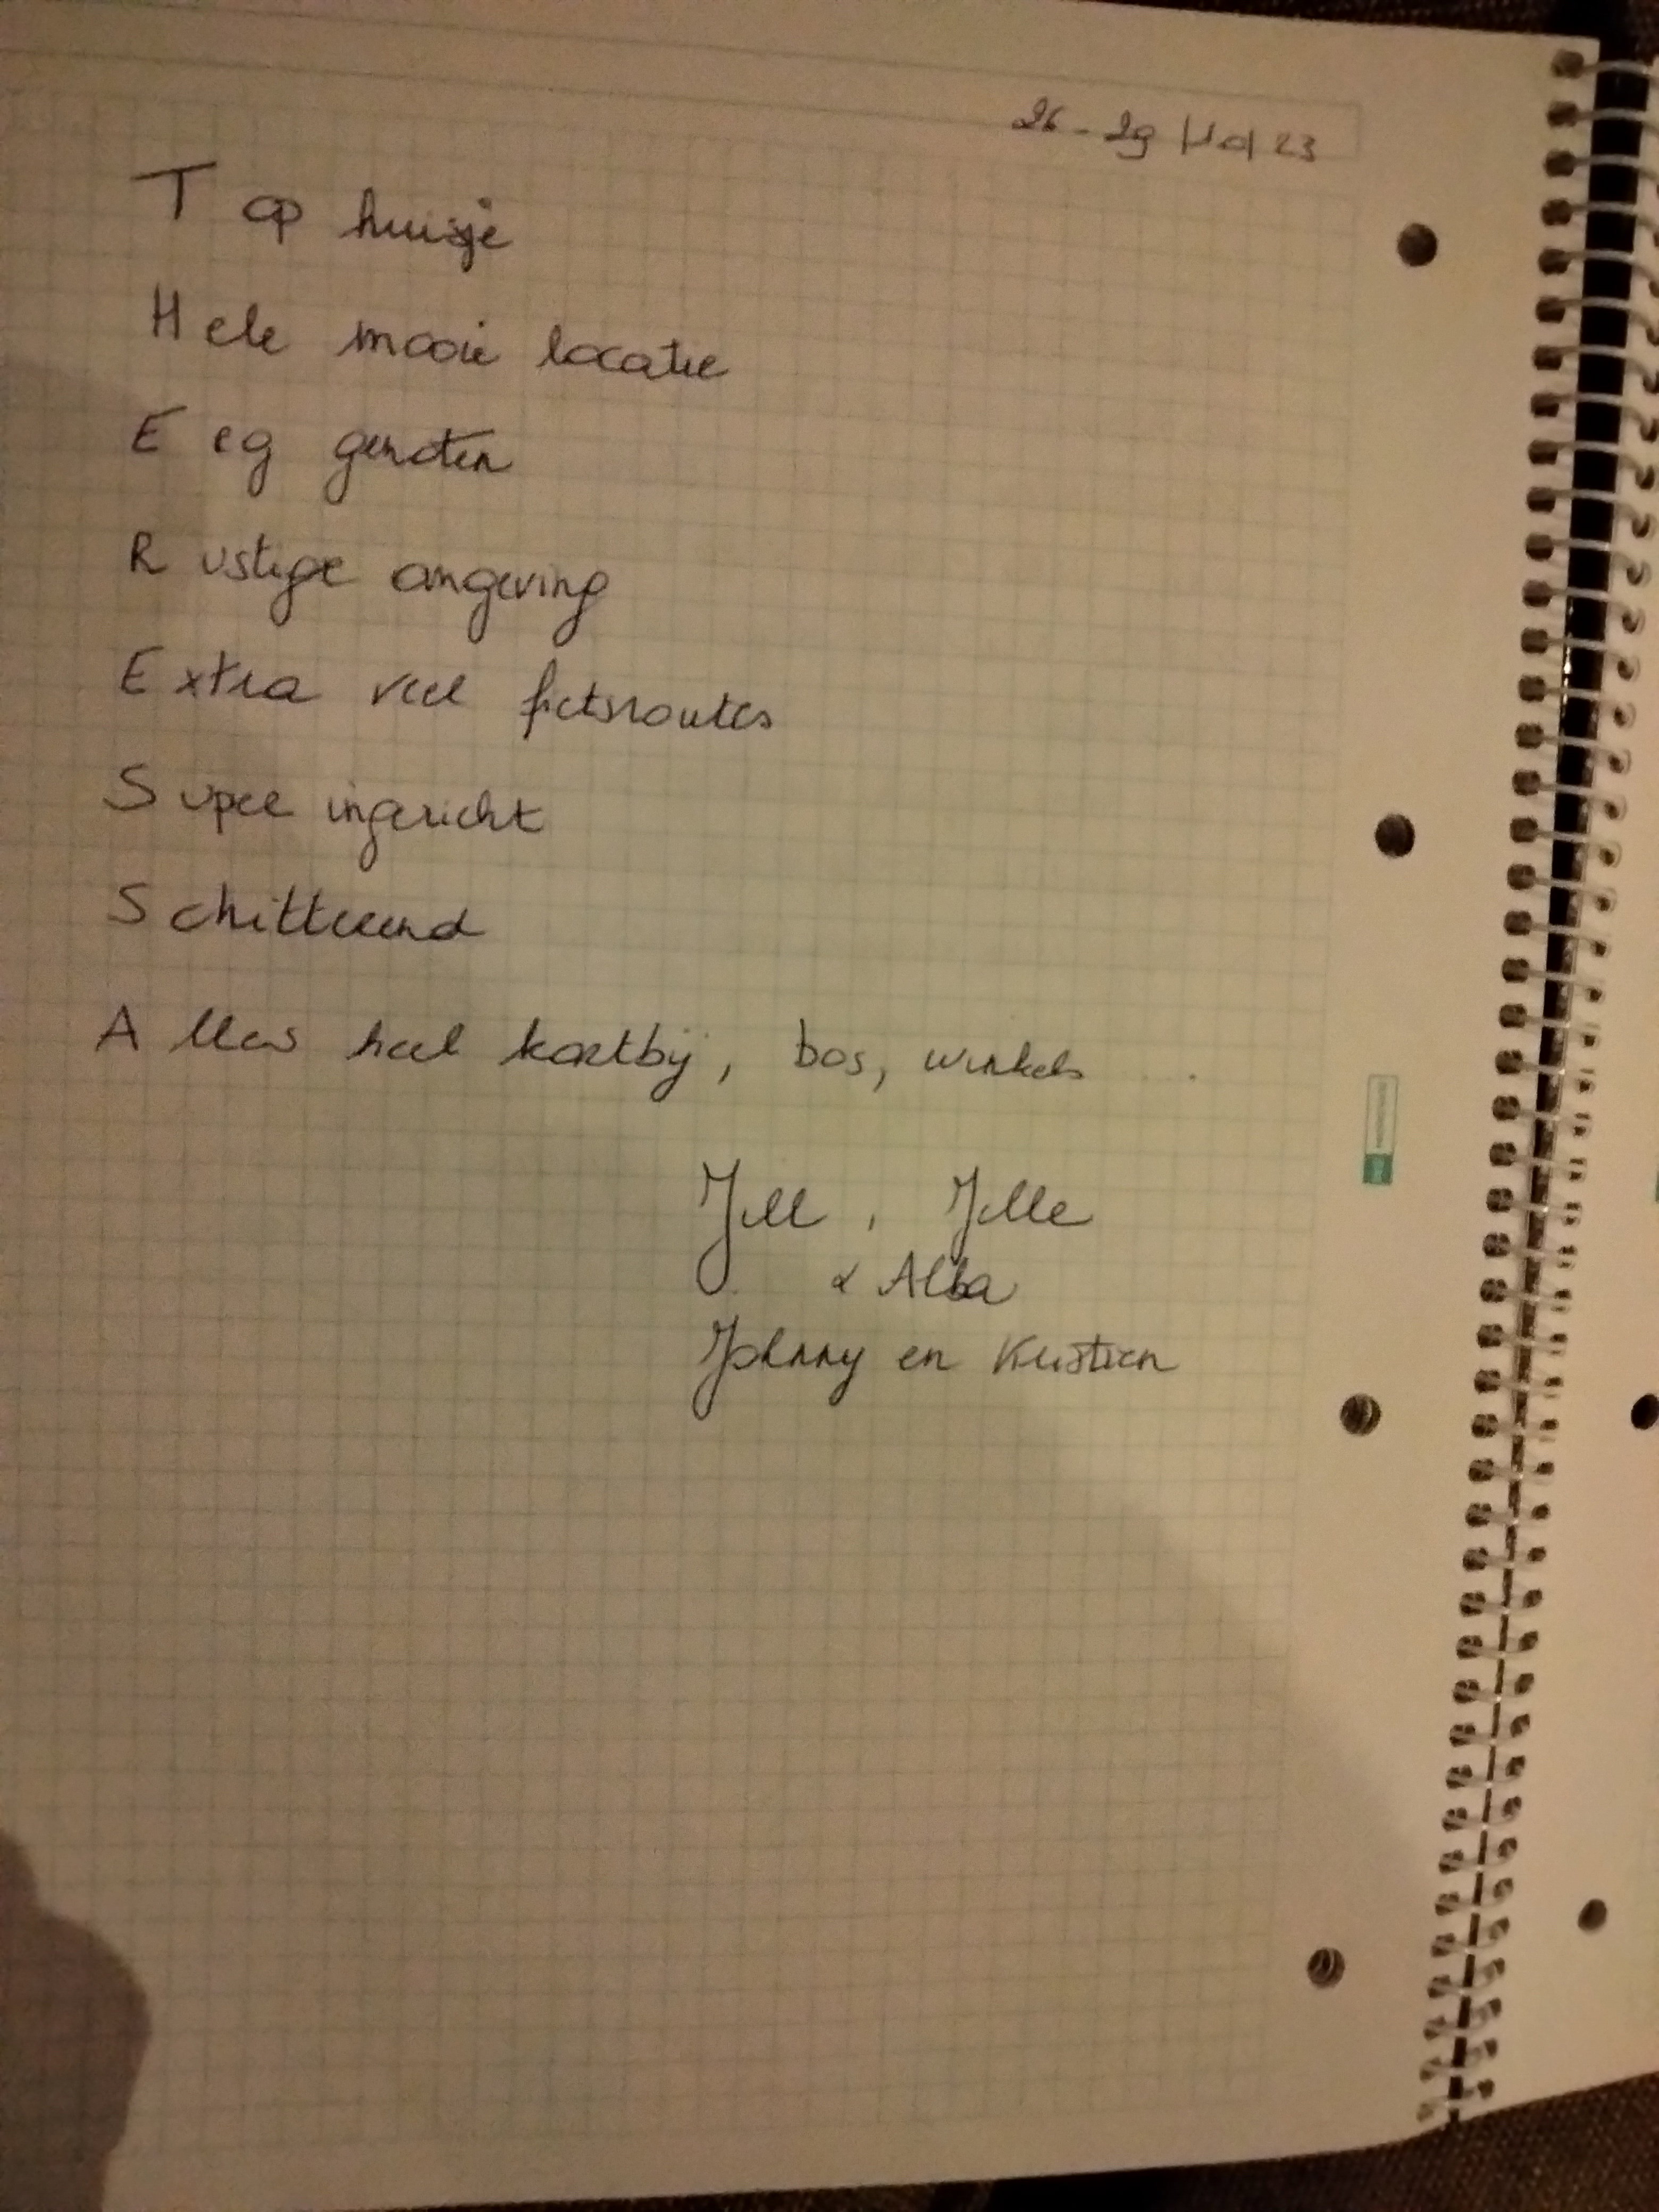 26 - 29 | 10 | 23
Top huisje
Hele mooie locatie
Eeg genoten
Rustige omgeving
Extra veel fietsroutes
Super ingericht
Schitterend
Alles heel kortbij, bos, winkels ...
Jill, Jelle
& Alba
Johnny en Kristien